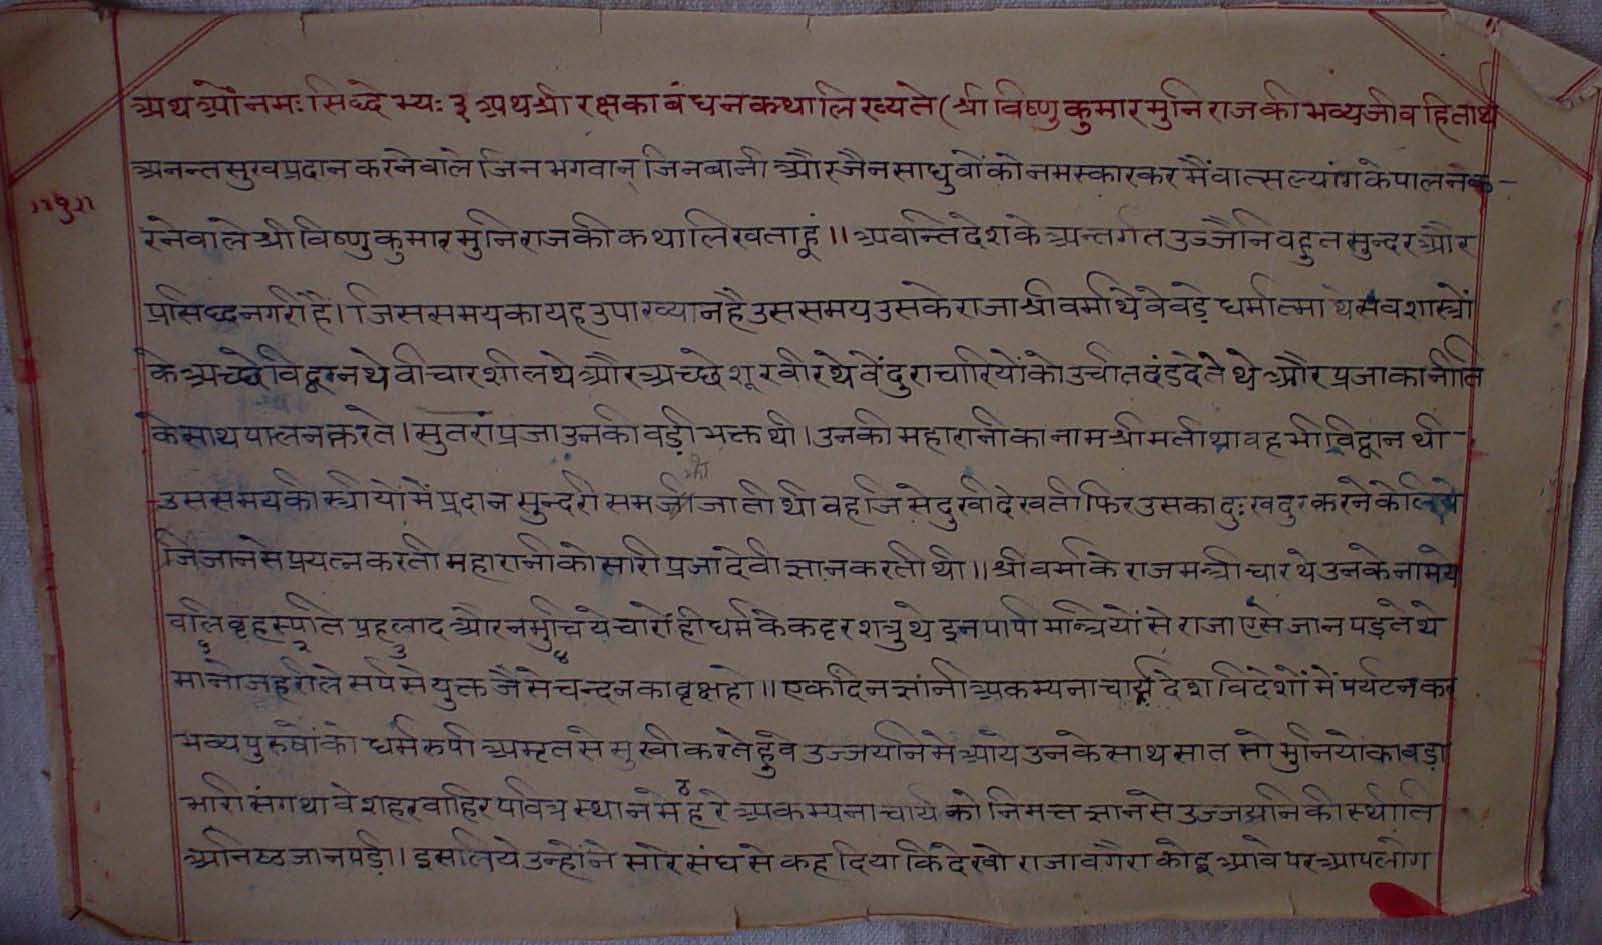 अथ ओं नमः सिद्धेभ्यः ३ अथ श्री रक्षकाबंधन कथा लिख्यते (श्री विष्णु कुमार मुनिराज की भव्य जीव हितार्थ
अनन्त सुख प्रदान करने वाले जिन भगवान् जिनबानी और जैन साधुवों को नमस्कार कर मैं वात्सल्यांग के पालने क-
॥१॥
रने वाले श्री विष्णु कुमार मुनिराज की कथा लिखता हूं ॥ अवन्ति देश के अन्तर्गत उज्जैनि वहुत सुन्दर और
प्रसिध्द नगरी है। जिस समय का यह उपाख्यान है उस समय उसके राजा श्री वर्मा थे वे वड़े धर्मात्मा थे सव शास्त्रों
के अच्छे विद्वान थे वीचारशील थे और अच्छे शूरवीर थे वें दुराचारियों को उचीत दंड देते थे और प्रजा का नीति
के साथ पालन करते। सुतरां प्रजा उनकी वड़ी भक्त थी। उनकी महारानी का नाम श्रीमती था वह भी विद्वान थी-
उस समय की स्त्रीयों में प्रदान सुन्दरी समजी जाती थी वह जिसे दुखी देखती फिर उसका दुःख दुर करने के लिये
जिजान से प्रयत्न करती महारानी को सारी प्रजा देवी ज्ञान करती थी ॥ श्री वर्मा के राजमन्त्री चार थे उनके नाम ये
वलि वृहस्पति प्रहलाद और नमुचि ये चारों ही धर्म के कट्टर शत्रु थे इन पापी मन्त्रियों से राजा एसे जान पड़ते थे
१ २ ३ ४
मानो जहरीले सर्प से युक्त जैसे चन्दन का वृक्ष हो ॥ एक दिन ज्ञांनी अकम्पनाचार्य देश विदेशों में पर्यटन कर
भव्य पुरुषों को धर्म रुपी अमृत से सुखी करते हुवे उज्जयनि में आये उनके साथ सात सो मुनियों का वड़ा
भारी संग था वे शहर वाहिर पवित्र स्थान में ठहरे अकम्पनाचार्य को निमत्त ज्ञान से उज्जयनि की स्थाति
अनिष्ठ जान पड़ी। इसलिये उन्होंने सारे संघ से कह दिया कि देखो राजा वगैरा कोइ आवे पर आप लोग